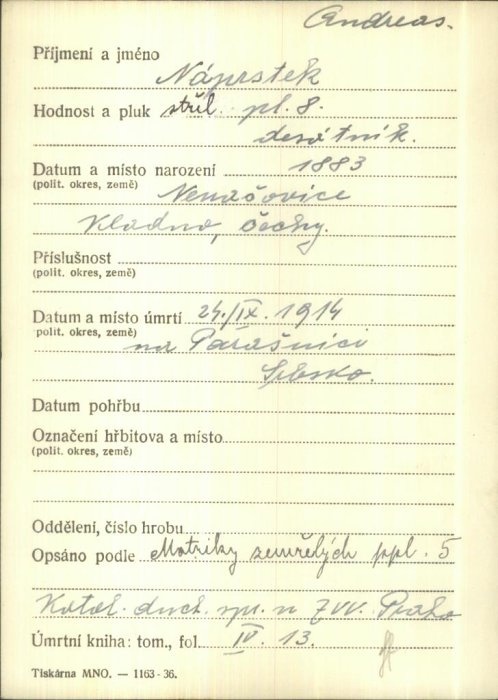 Andreas.
Příjmení a jméno
Náprstek
Hodnost a pluk střel. pl. 8.
desátník.
Datum a místo narození 1883
(polit. okres, země)
Nenačovice
Kladno, Čechy.
Příslušnost
(polit. okres, země)
Datum a místo úmrtí 24./IX. 1914
polit. okres, země)
na Parašnici
Srbsko.
Datum pohřbu
Označení hřbitova a místo
(polit. okres, země)
Oddělení, číslo hrobu
Opsáno podle Matriky zemřelých ppl. 5
Katol. duch. spr. u ZVV. Praha
Úmrtní kniha: tom., fol. IV. 13.
Tiskárna MNO. — 1163-36.